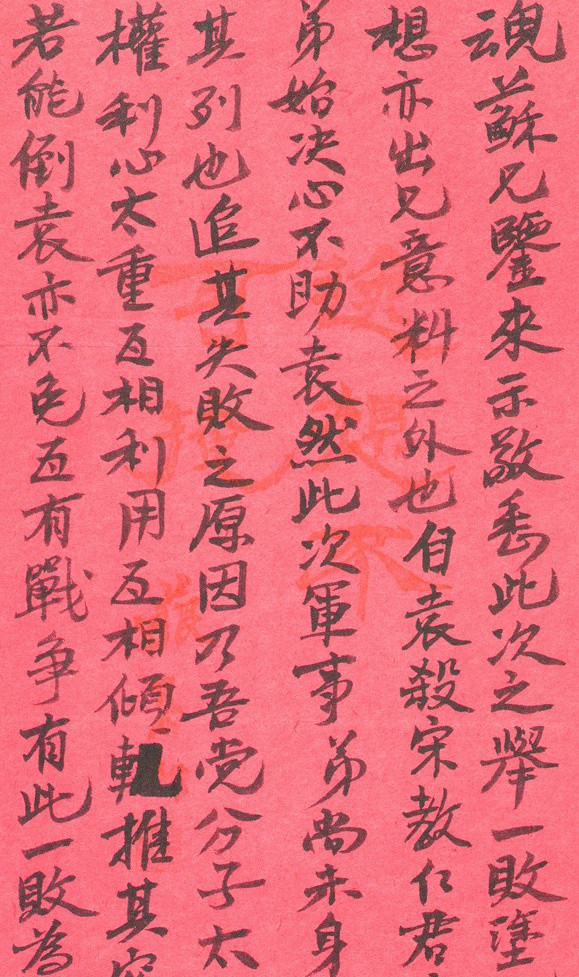 魂蘇兄鑒來示敬悉此次之舉一敗塗
想亦出兄意料之外也自袁殺宋教仁君
弟始决心不助袁然此次軍事弟尚未身
其列也追其失敗之原因乃吾党分子太
權利心太重互相利用互相傾軋推其
若能倒袁亦不免互有戰争有此一敗為